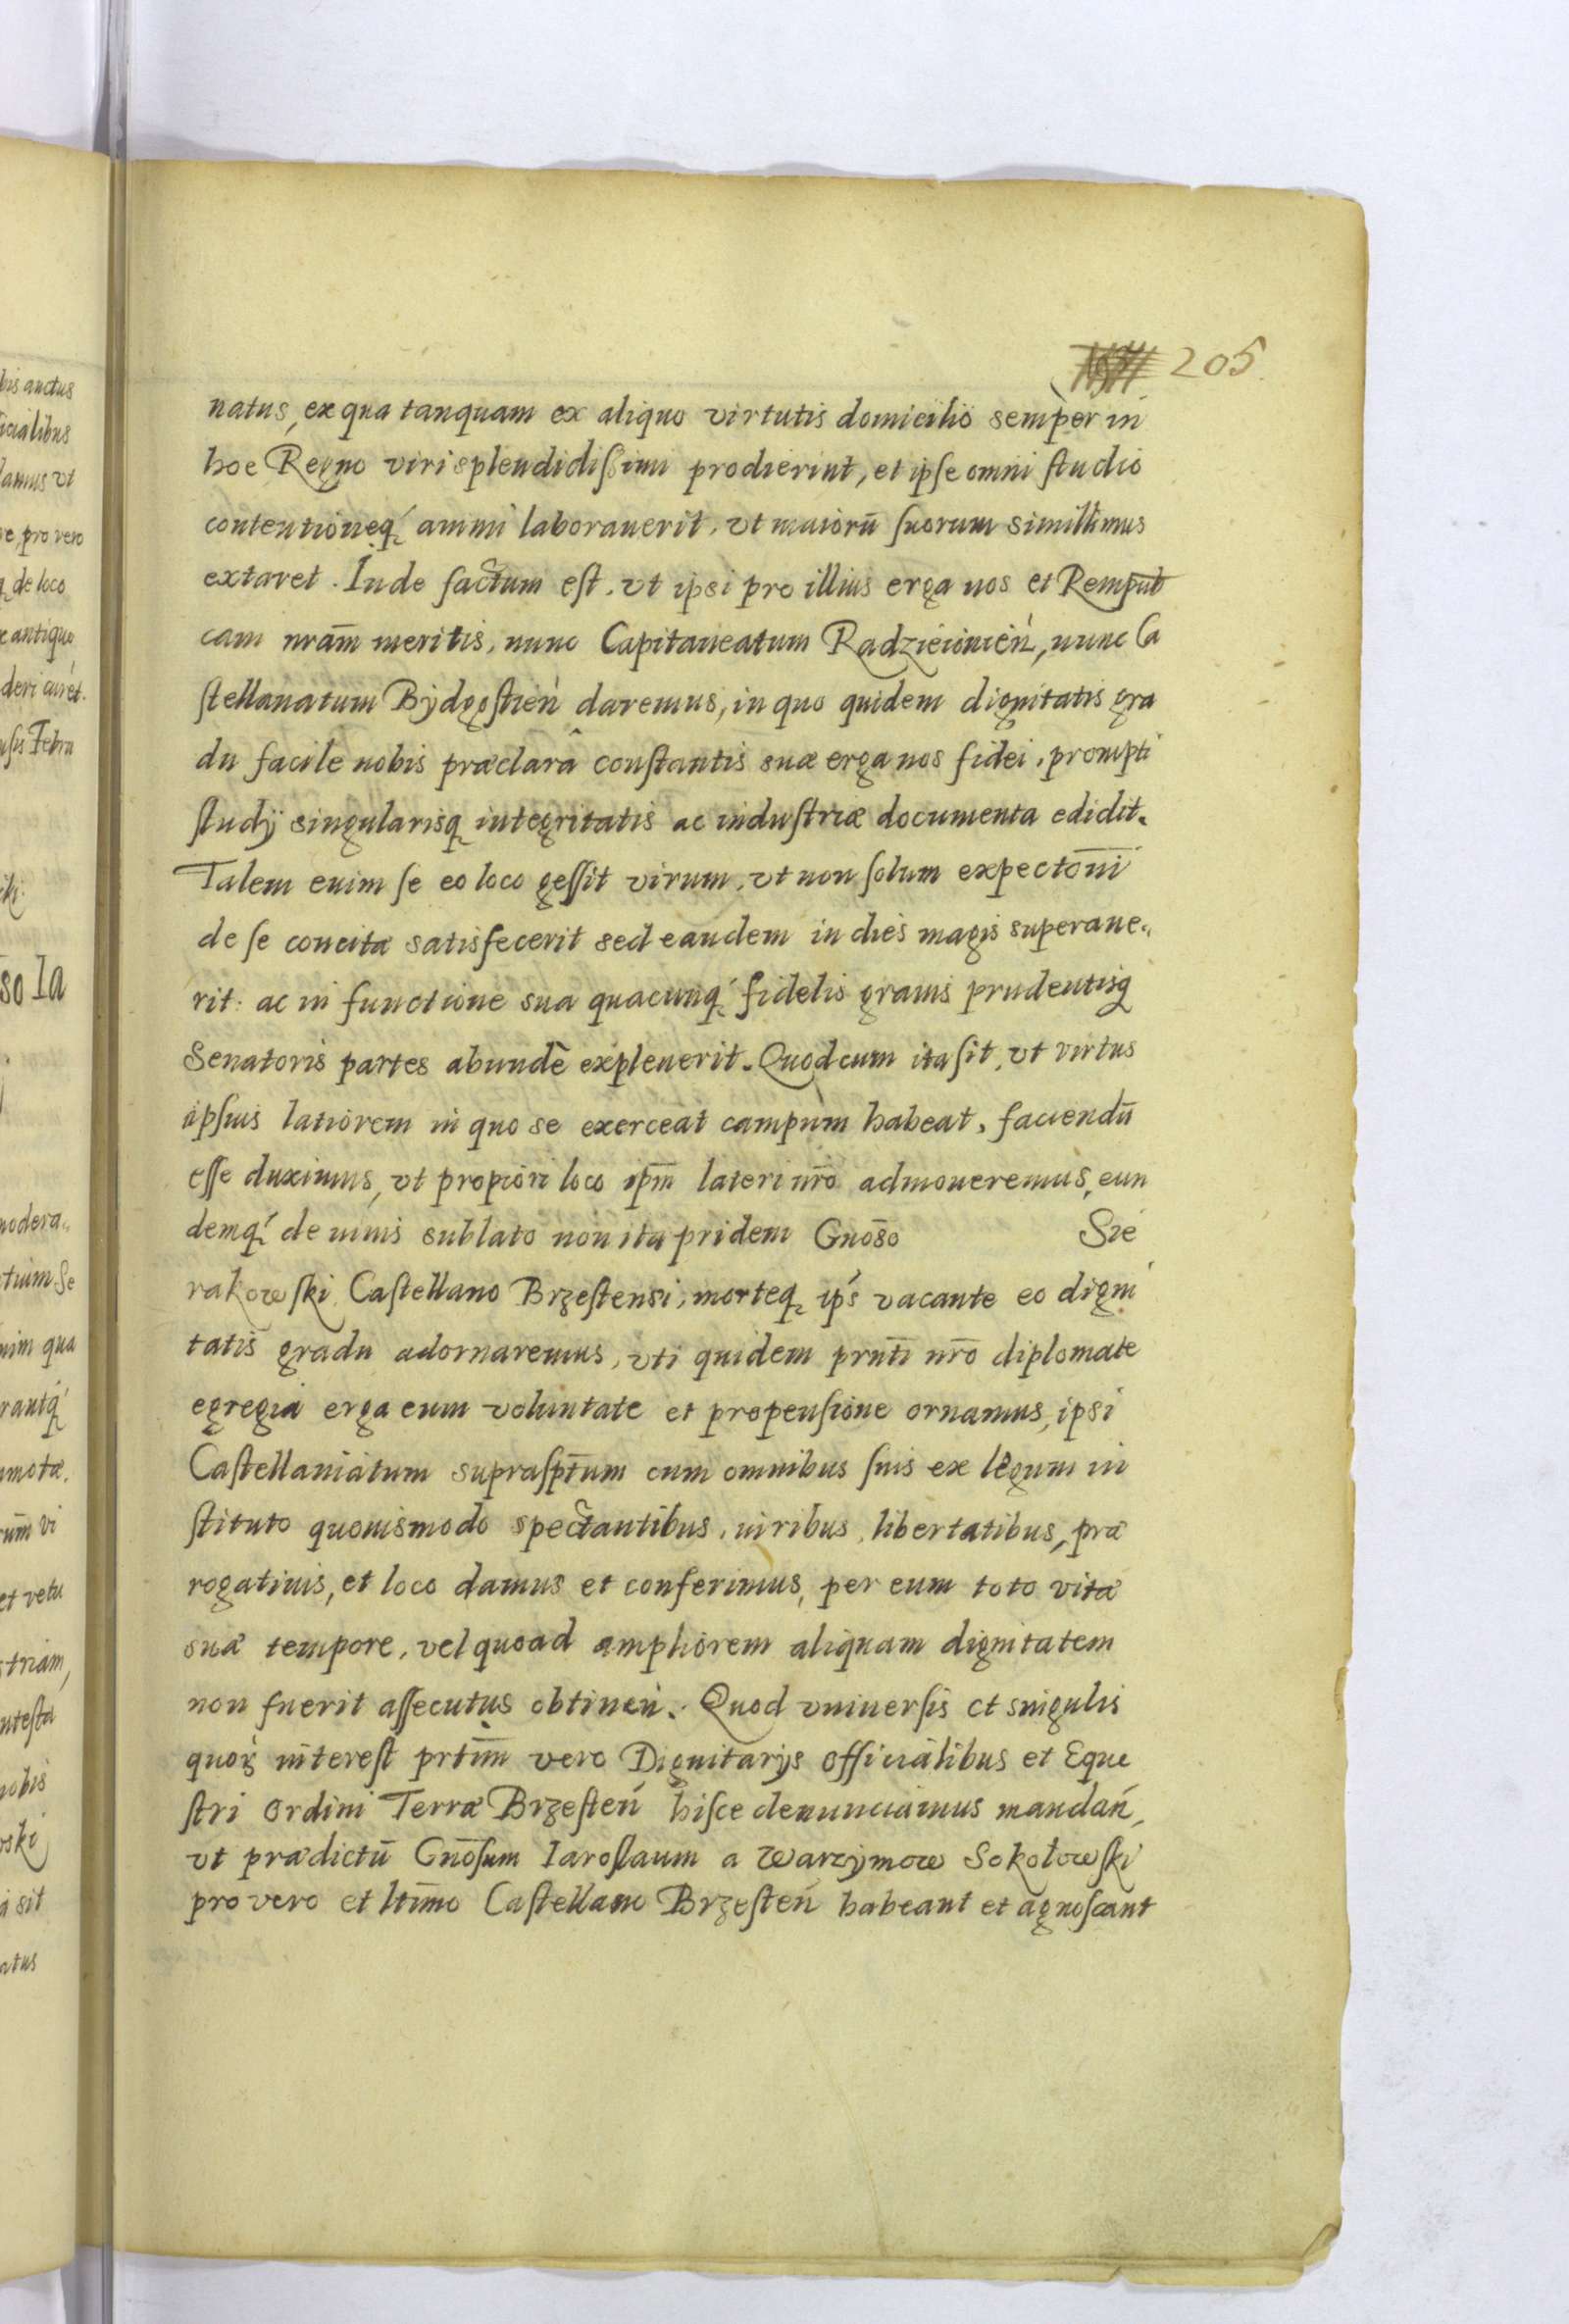 205
natus, ex qua tanquam ex aliquo virtutis domicilio semper in
hoc Regno viri splendidißimi prodierint, et ipſe omni ſtudio
contentioneq́ animi laborauerit, vt maiorū ſuorum simillimus
extaret. Inde factum eſt, vt ipsi pro illius erga nos et Rempub
cam nrām meritis, nunc Capitaneatum Radzieiouień, nunc Ca
ſtellanatum Bÿdgoſtień daremus, in quo quidem dignitatis gra
du facile nobis præclarâ conſtantis suæ erga nos fidei, prompti
ſtudÿ singularisq integritatis ac induſtriæ documenta edidit.
Talem enim ſe eo loco geſſit virum, vt non ſolum expectōni
de ſe concitæ satisfecerit sed eandem in dies magis superaue„
rit: ac in functione sua quacunq́ fidelis grauis prudentisq
Senatoris partes abundè expleuerit. Quod cum ita ſit, vt virtus
ipſius latiorem in quo se exerceat campum habeat, faciendū
eſſe duximus, vt propiori loco ipm̄ lateri nr̄o admoueremus, eun
demq́ de viuis sublato non ita pridem Gnōso Sie
rakowſki Caſtellano Brzeſtensi, morteq ips vacante eo digni
tatis gradu adornaremus, vti quidem prn̄ti nr̄o diplomate
egregia erga eum voluntate et propenſione ornamus, ipsi
Caſtellaniatum supraſpt̄um cum omnibus ſuis ex legum in
ſtituto quouismodo spectantibus, iuribus, libertatibus, præ
rogatiuis, et loco damus et conferimus, per eum toto vitæ
suæ tempore, vel quoad ampliorem aliquam dignitatem
non fuerit aſſecutus obtineń. Quod vniuerſis et singulis
quor̨ intereſt prtim̄ vero Dignitarÿs officialibus et Eque
ſtri Ordini Terræ Brzeſteń hiſce denunciamus mandań,
vt prædictū Gnōſum Iaroſlaum a Warzÿmow Sokołowſki
pro vero et ltīmo Caſtellano Brzeſteń habeant et agnoſcant